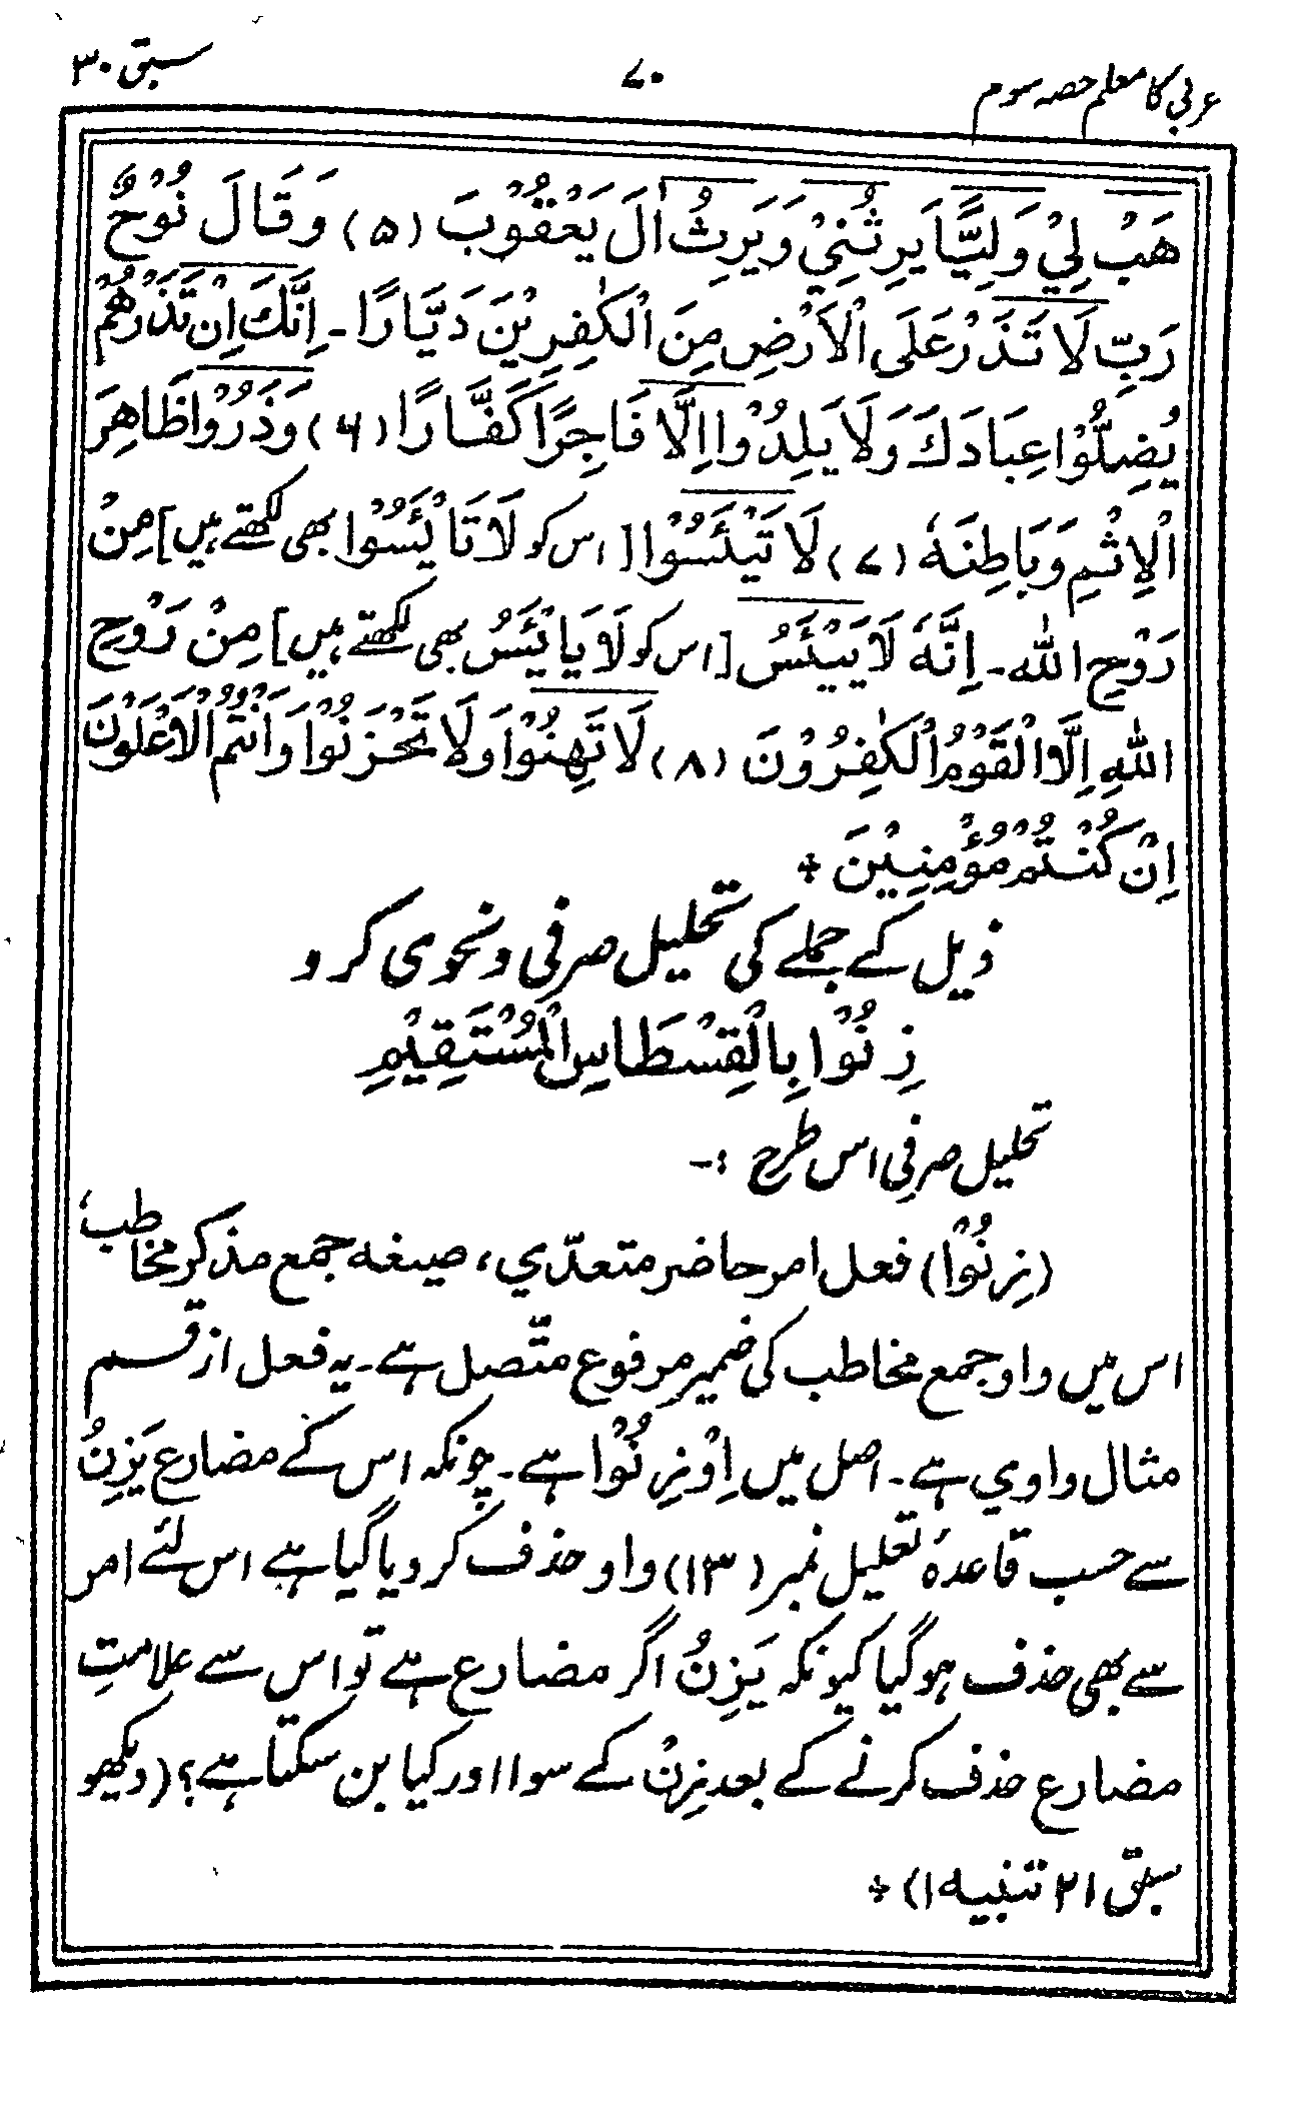 عربی کا معلم حصہ سوم ۷۰ سبق ۳۰
هَبْ لِيْ وَلِيًّا يَرِثُنِيْ وَيَرِثُ اٰلَ يَعْقُوْبَ (۵) وَقَالَ نُوْحٌ
رَبِّ لَا تَذَرْ عَلَى الْاَرْضِ مِنَ الْكٰفِرِيْنَ دَيَّارًا۔ اِنَّكَ اِنْ تَذَرْهُمْ
يُضِلُّوْا عِبَادَكَ وَلَا يَلِدُوْا اِلَّا فَاجِرًا كَفَّارًا (۶) وَذَرُوْا ظَاهِرَ
الْاِثْمِ وَبَاطِنَهٗ (۷) لَا تَيْئَسُوْا [اس کو لَا تَايْئَسُوْا بھی لکھتے ہیں] مِنْ
رَوْحِ اللّٰه۔ اِنَّهٗ لَا يَيْئَسُ [اس کو لَا يَايْئَسُ بھی لکھتے ہیں] مِنْ رَوْحِ
اللّٰهِ اِلَّا الْقَوْمُ الْكٰفِرُوْنَ (۸) لَا تَهِنُوْا وَلَا تَحْزَنُوْا وَاَنْتُمُ الْاَعْلَوْنَ
اِنْ كُنْتُمْ مُؤْمِنِيْنَ ÷
ذیل کے جملے کی تحلیل صرفی و نحوی کرو
زِنُوْا بِالْقِسْطَاسِ الْمُسْتَقِيْمِ
تحلیل صرفی اس طرح :-
(زِنُوْا) فعل امر حاضر متعدّي، صیغہ جمع مذکر مخاطب،
اس میں واو جمع مخاطب کی ضمیر مرفوع متّصل ہے۔ یہ فعل از قسم
مثال واوي ہے۔ اصل میں اِوْزِنُوْا ہے۔ چونکہ اس کے مضارع يَزِنُ
سے حسب قاعدۂ تعلیل نمبر (۱۳) واو حذف کر دیا گیا ہے اس لئے امر
سے بھی حذف ہو گیا کیونکہ يَزِنُ اگر مضارع ہے تو اس سے علامتِ
مضارع حذف کرنے کے بعد زِنْ کے سوا اور کیا بن سکتا ہے؟ (دیکھو
سبق ۲۱ تنبیہ ۱) ÷